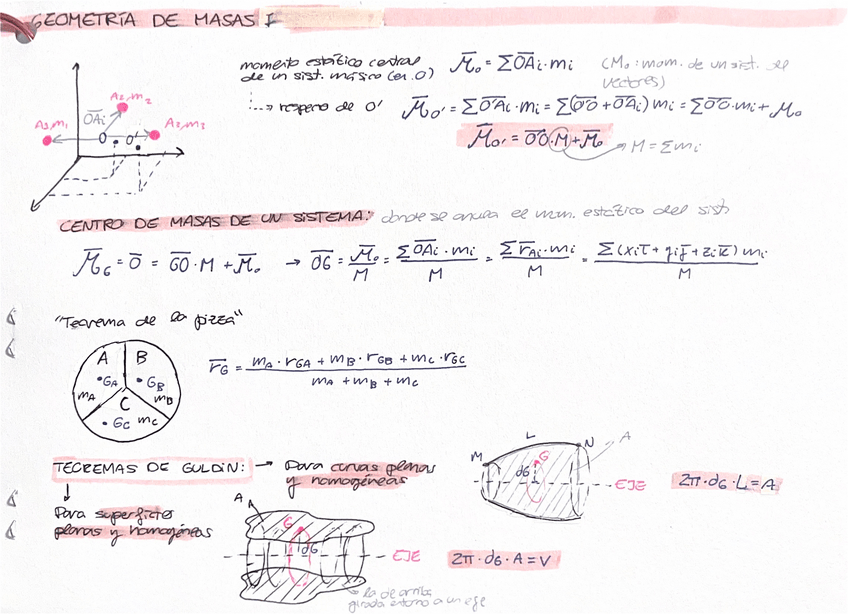 GEOMETRÍA DE MASAS I
momento estático central
de un sist. másico (en O)
M̄o = ΣŌAi·mi
(Mo: mom. de un sist. de
vectores)
respecto de O'
M̄o' = ΣO'Ai·mi = Σ(O'O + OAi) mi = ΣO'O·mi + Mo
M̄o' = O'O·M + M̄o
M = Σmi
A1,m1
A2,m2
A3,m3
OAi
O
O'
CENTRO DE MASAS DE UN SISTEMA: donde se anula el mom. estático del sist
M̄G = Ō = GO·M + M̄o → OG = M̄o/M = ΣOAi·mi/M = Σr̄Ai·mi/M = Σ(xi ī + yi j̄ + zi k̄) mi/M
"Teorema de la pizza"
A B
GA GB
mA mB
C
GC mC
r̄G = (mA·rGA + mB·rGB + mC·rGC)/(mA + mB + mC)
TEOREMAS DE GULDIN: → Para curvas planas
y homogéneas
M L N A
G
dG
EJE
2π·dG·L = A
Para superficies
planas y homogéneas
A
G
dG
EJE
2π·dG·A = V
la de arriba
girada entorno a un eje